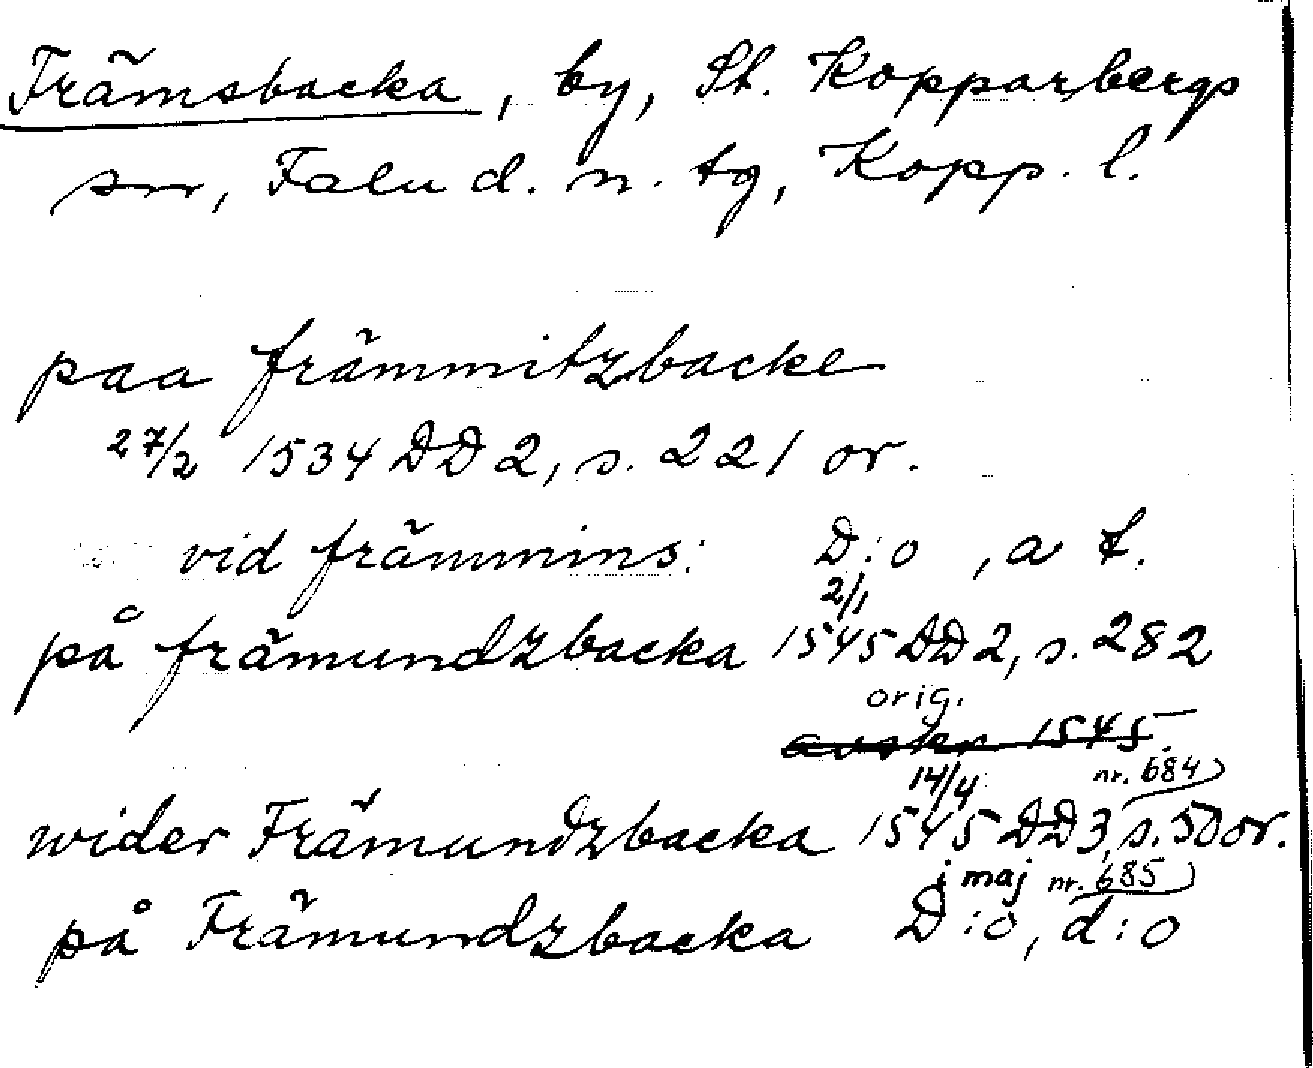 Främsbacka, by, St. Kopparbergs
sn, Falu d. n. tg, Kopp. l.
paa främmitzbacke
27/2 1534 DD 2, s. 221 or.
vid främmins: D:o , a t.
2/1
på främundzbacka 1545 DD 2, s. 282
orig.
avskr. 1545.
14/4 nr. 684
wider Främundzbacka 1545 DD 3, s. 50 or.
j maj nr. 685
på Främundzbacka D:o, d:o